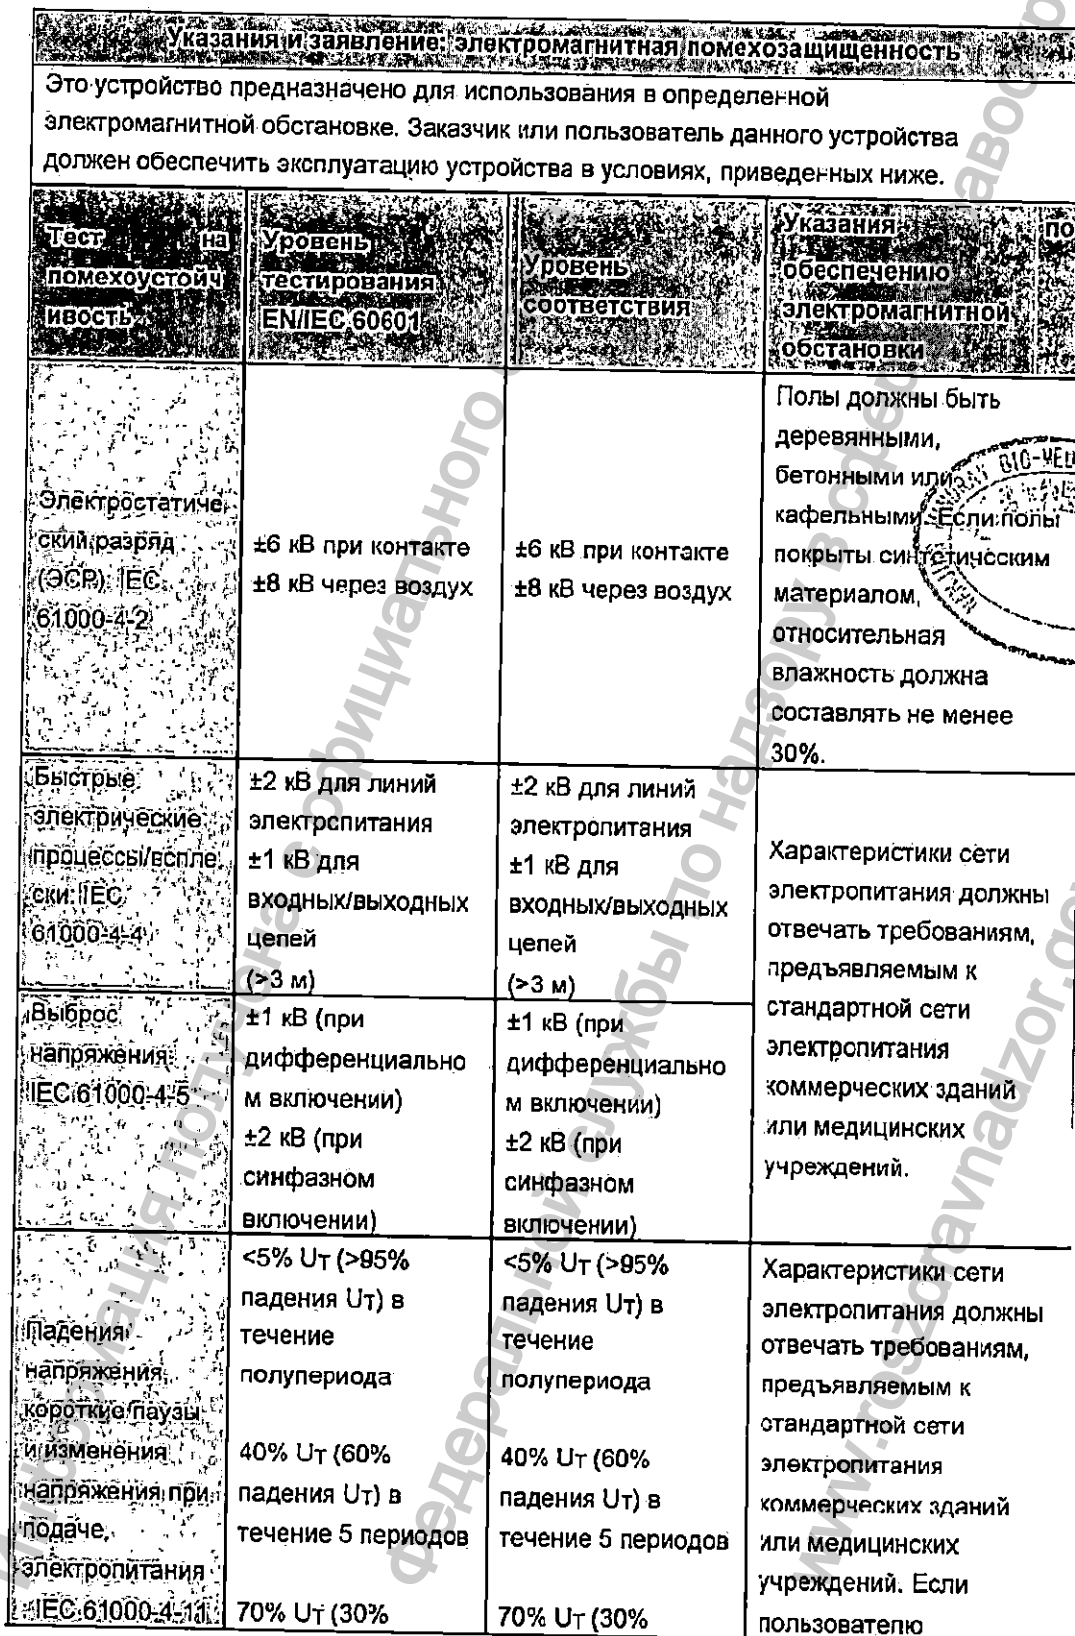 Указания и заявление: электромагнитная помехозащищенность
Это устройство предназначено для использования в определенной
электромагнитной обстановке. Заказчик или пользователь данного устройства
должен обеспечить эксплуатацию устройства в условиях, приведенных ниже.
Тест на
помехоустойч
ивость
Уровень
тестирования
EN/IEC 60601
Уровень
соответствия
Указания по
обеспечению
электромагнитной
обстановки
Электростатиче
ский разряд
(ЭСР) IEC
61000-4-2
±6 кВ при контакте
±8 кВ через воздух
±6 кВ при контакте
±8 кВ через воздух
Полы должны быть
деревянными,
бетонными или
кафельными. Если полы
покрыты синтетическим
материалом,
относительная
влажность должна
составлять не менее
30%.
Быстрые
электрические
процессы/вспле
ски IEC
61000-4-4
±2 кВ для линий
электропитания
±1 кВ для
входных/выходных
цепей
(>3 м)
±2 кВ для линий
электропитания
±1 кВ для
входных/выходных
цепей
(>3 м)
Характеристики сети
электропитания должны
отвечать требованиям,
предъявляемым к
стандартной сети
электропитания
коммерческих зданий
или медицинских
учреждений.
Выброс
напряжения
IEC 61000-4-5
±1 кВ (при
дифференциально
м включении)
±2 кВ (при
синфазном
включении)
±1 кВ (при
дифференциально
м включении)
±2 кВ (при
синфазном
включении)
Падения
напряжения,
короткие паузы
и изменения
напряжения при
подаче
электропитания
IEC 61000-4-11
<5% Uт (>95%
падения Uт) в
течение
полупериода
40% Uт (60%
падения Uт) в
течение 5 периодов
70% Uт (30%
<5% Uт (>95%
падения Uт) в
течение
полупериода
40% Uт (60%
падения Uт) в
течение 5 периодов
70% Uт (30%
Характеристики сети
электропитания должны
отвечать требованиям,
предъявляемым к
стандартной сети
электропитания
коммерческих зданий
или медицинских
учреждений. Если
пользователю
BIO-MED
Информация получена с официального
Федеральной службы по надзору в сфе
www.roszdravnadzor.go